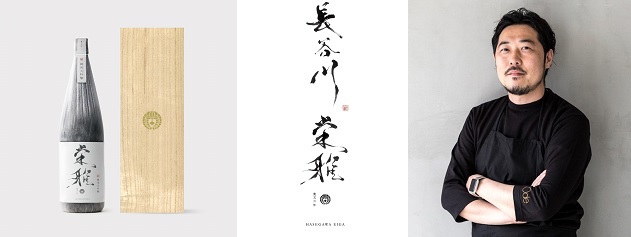 栄雅
長谷川
栄雅
HASEGAWA EIGA